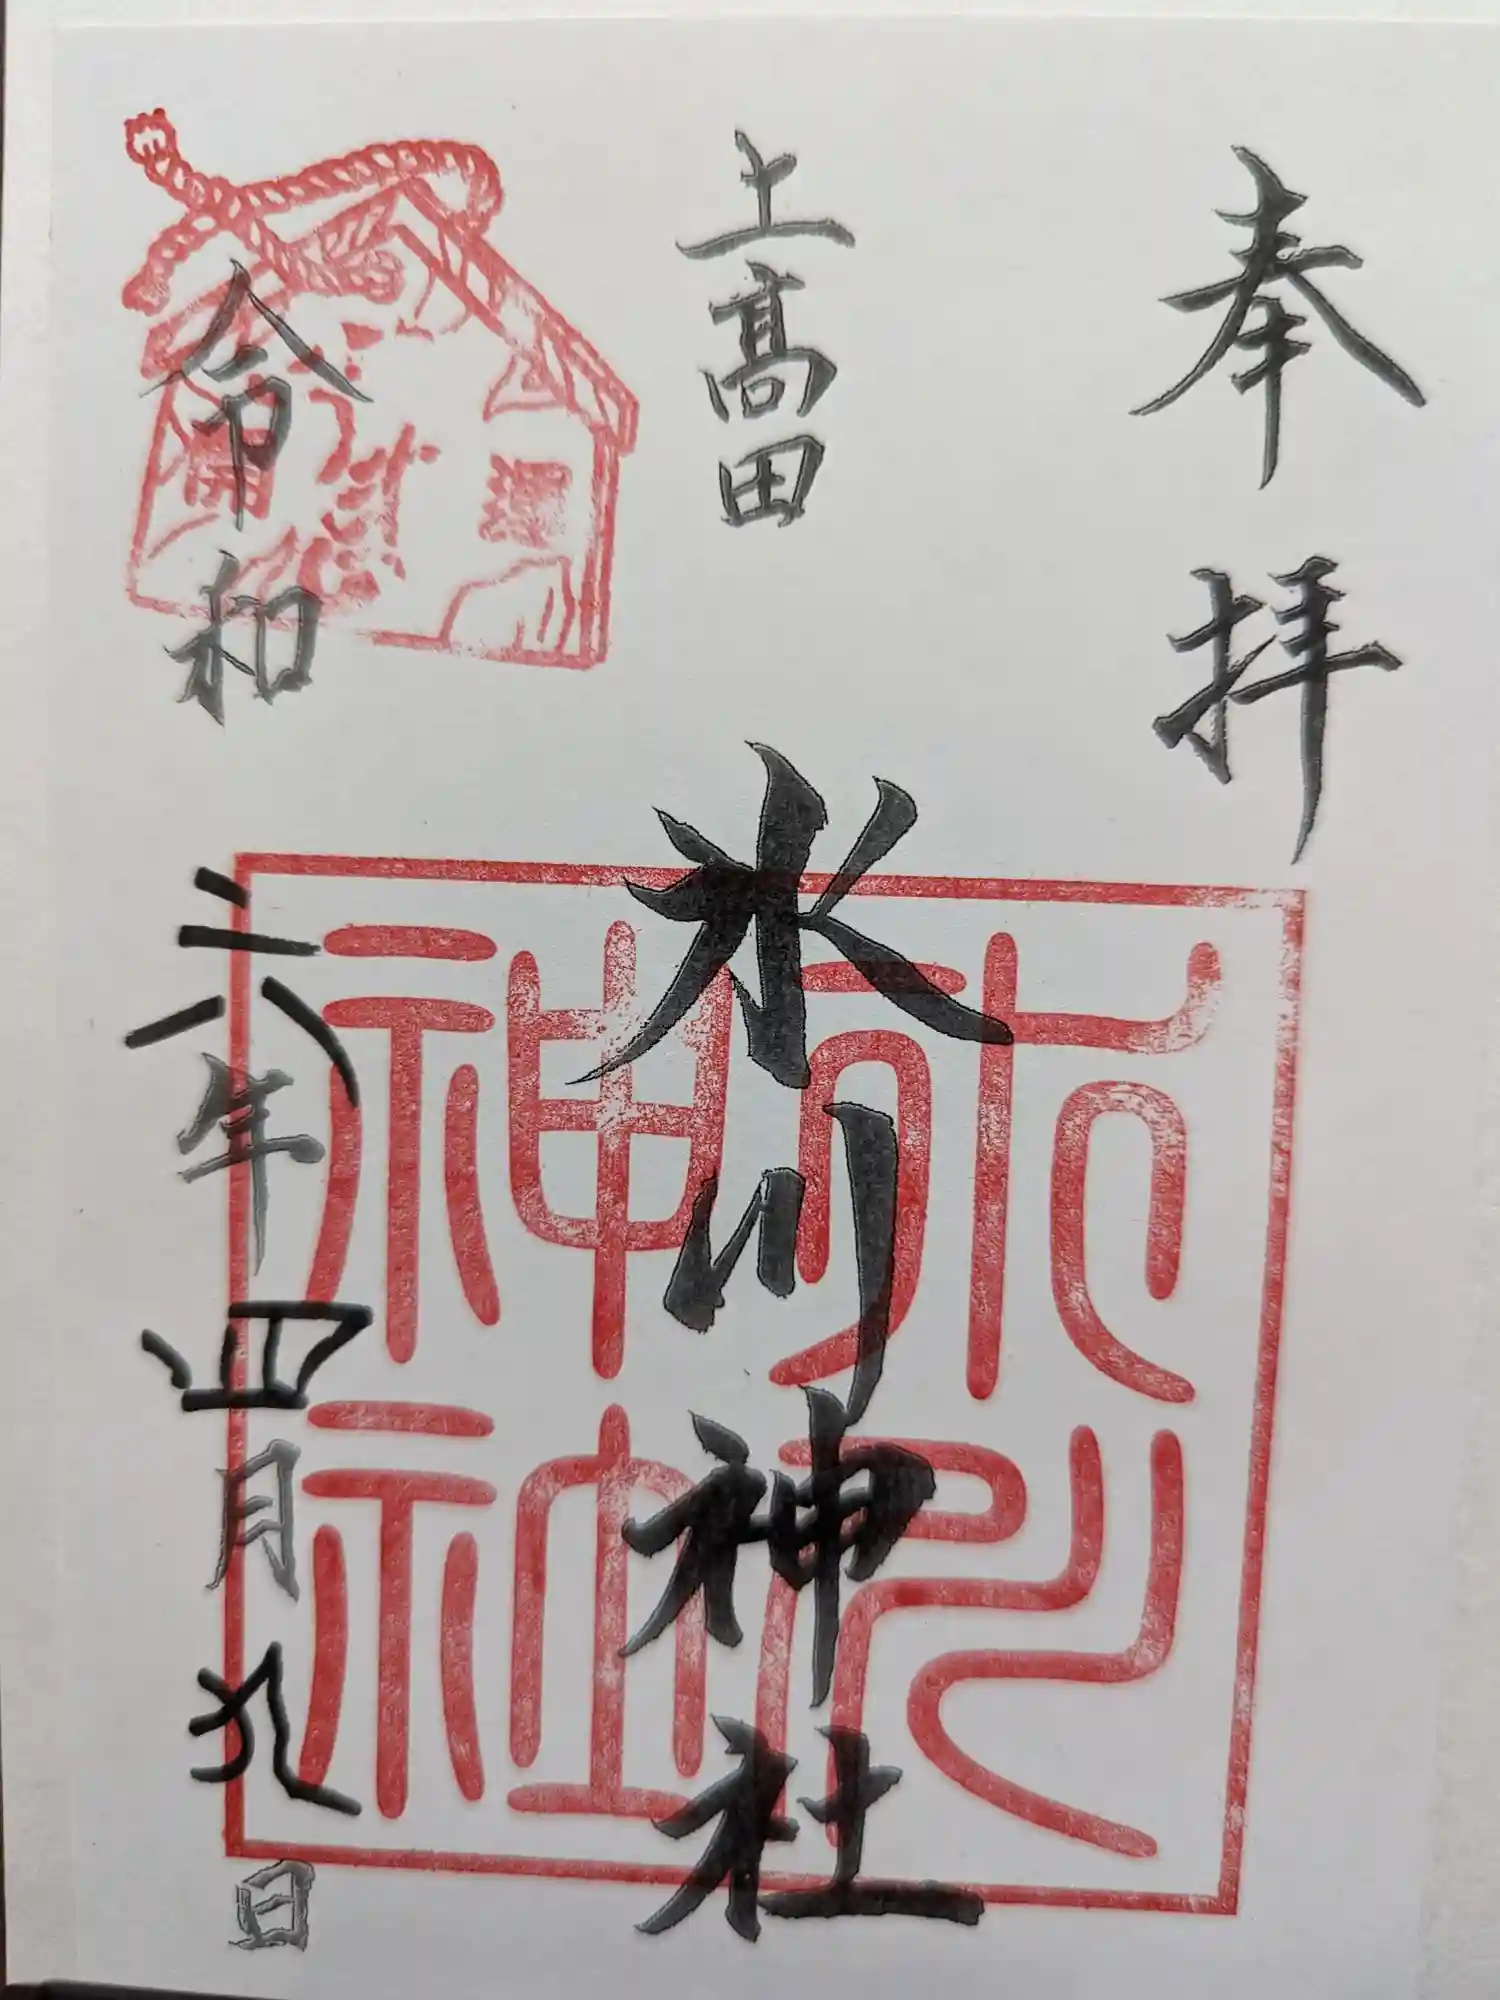 奉拝
上髙田
氷川神社
令和六年四月九日
開運
神社